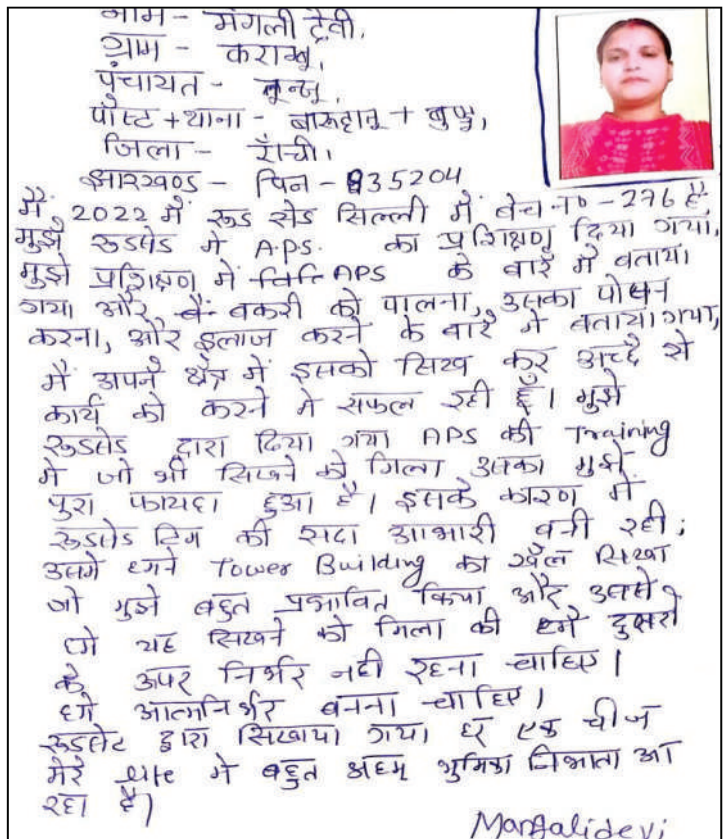 नाम - मंगली देवी,
ग्राम - कराम्बू,
पंचायत - लून्गू,
पोस्ट + थाना - बारूहातू + बुण्डू,
जिला - राँची।
झारखण्ड - पिन - 835204
मैं 2022 में रूड सेड सिल्ली में बेच no - 276 है
मुझे रूडसेड में A.P.S. का प्रशिक्षण दिया गया,
मुझे प्रशिक्षण में APS के बारे में बताया
गया और बकरी को पालना, उसका पोषन
करना, और इलाज करने के बारे में बताया गया,
मैं अपने क्षेत्र में इसको सिख कर अच्छे से
कार्य को करने मे सफल रही हूँ। मुझे
रूडसेड द्वारा दिया गया APS की Training
मे जो भी सिखने को मिला उसका मुझे
पुरा फायदा हुआ है। इसके कारण में
रूडसेड टिम की सदा आभारी बनी रही;
उसमे हमने Tower Building का खेल सिखा
जो मुझे बहुत प्रभावित किया और उससे
हमे यह सिखने को मिला की हमे दुसरो
के उपर निर्भर नही रहना चाहिए।
हमे आत्मनिर्भर बनना चाहिए।
रूडसेट द्वारा सिखाया गया हर एक चीज
मेरे life मे बहुत अहम् भुमिका निभाता आ
रहा है।
Mangalidevi